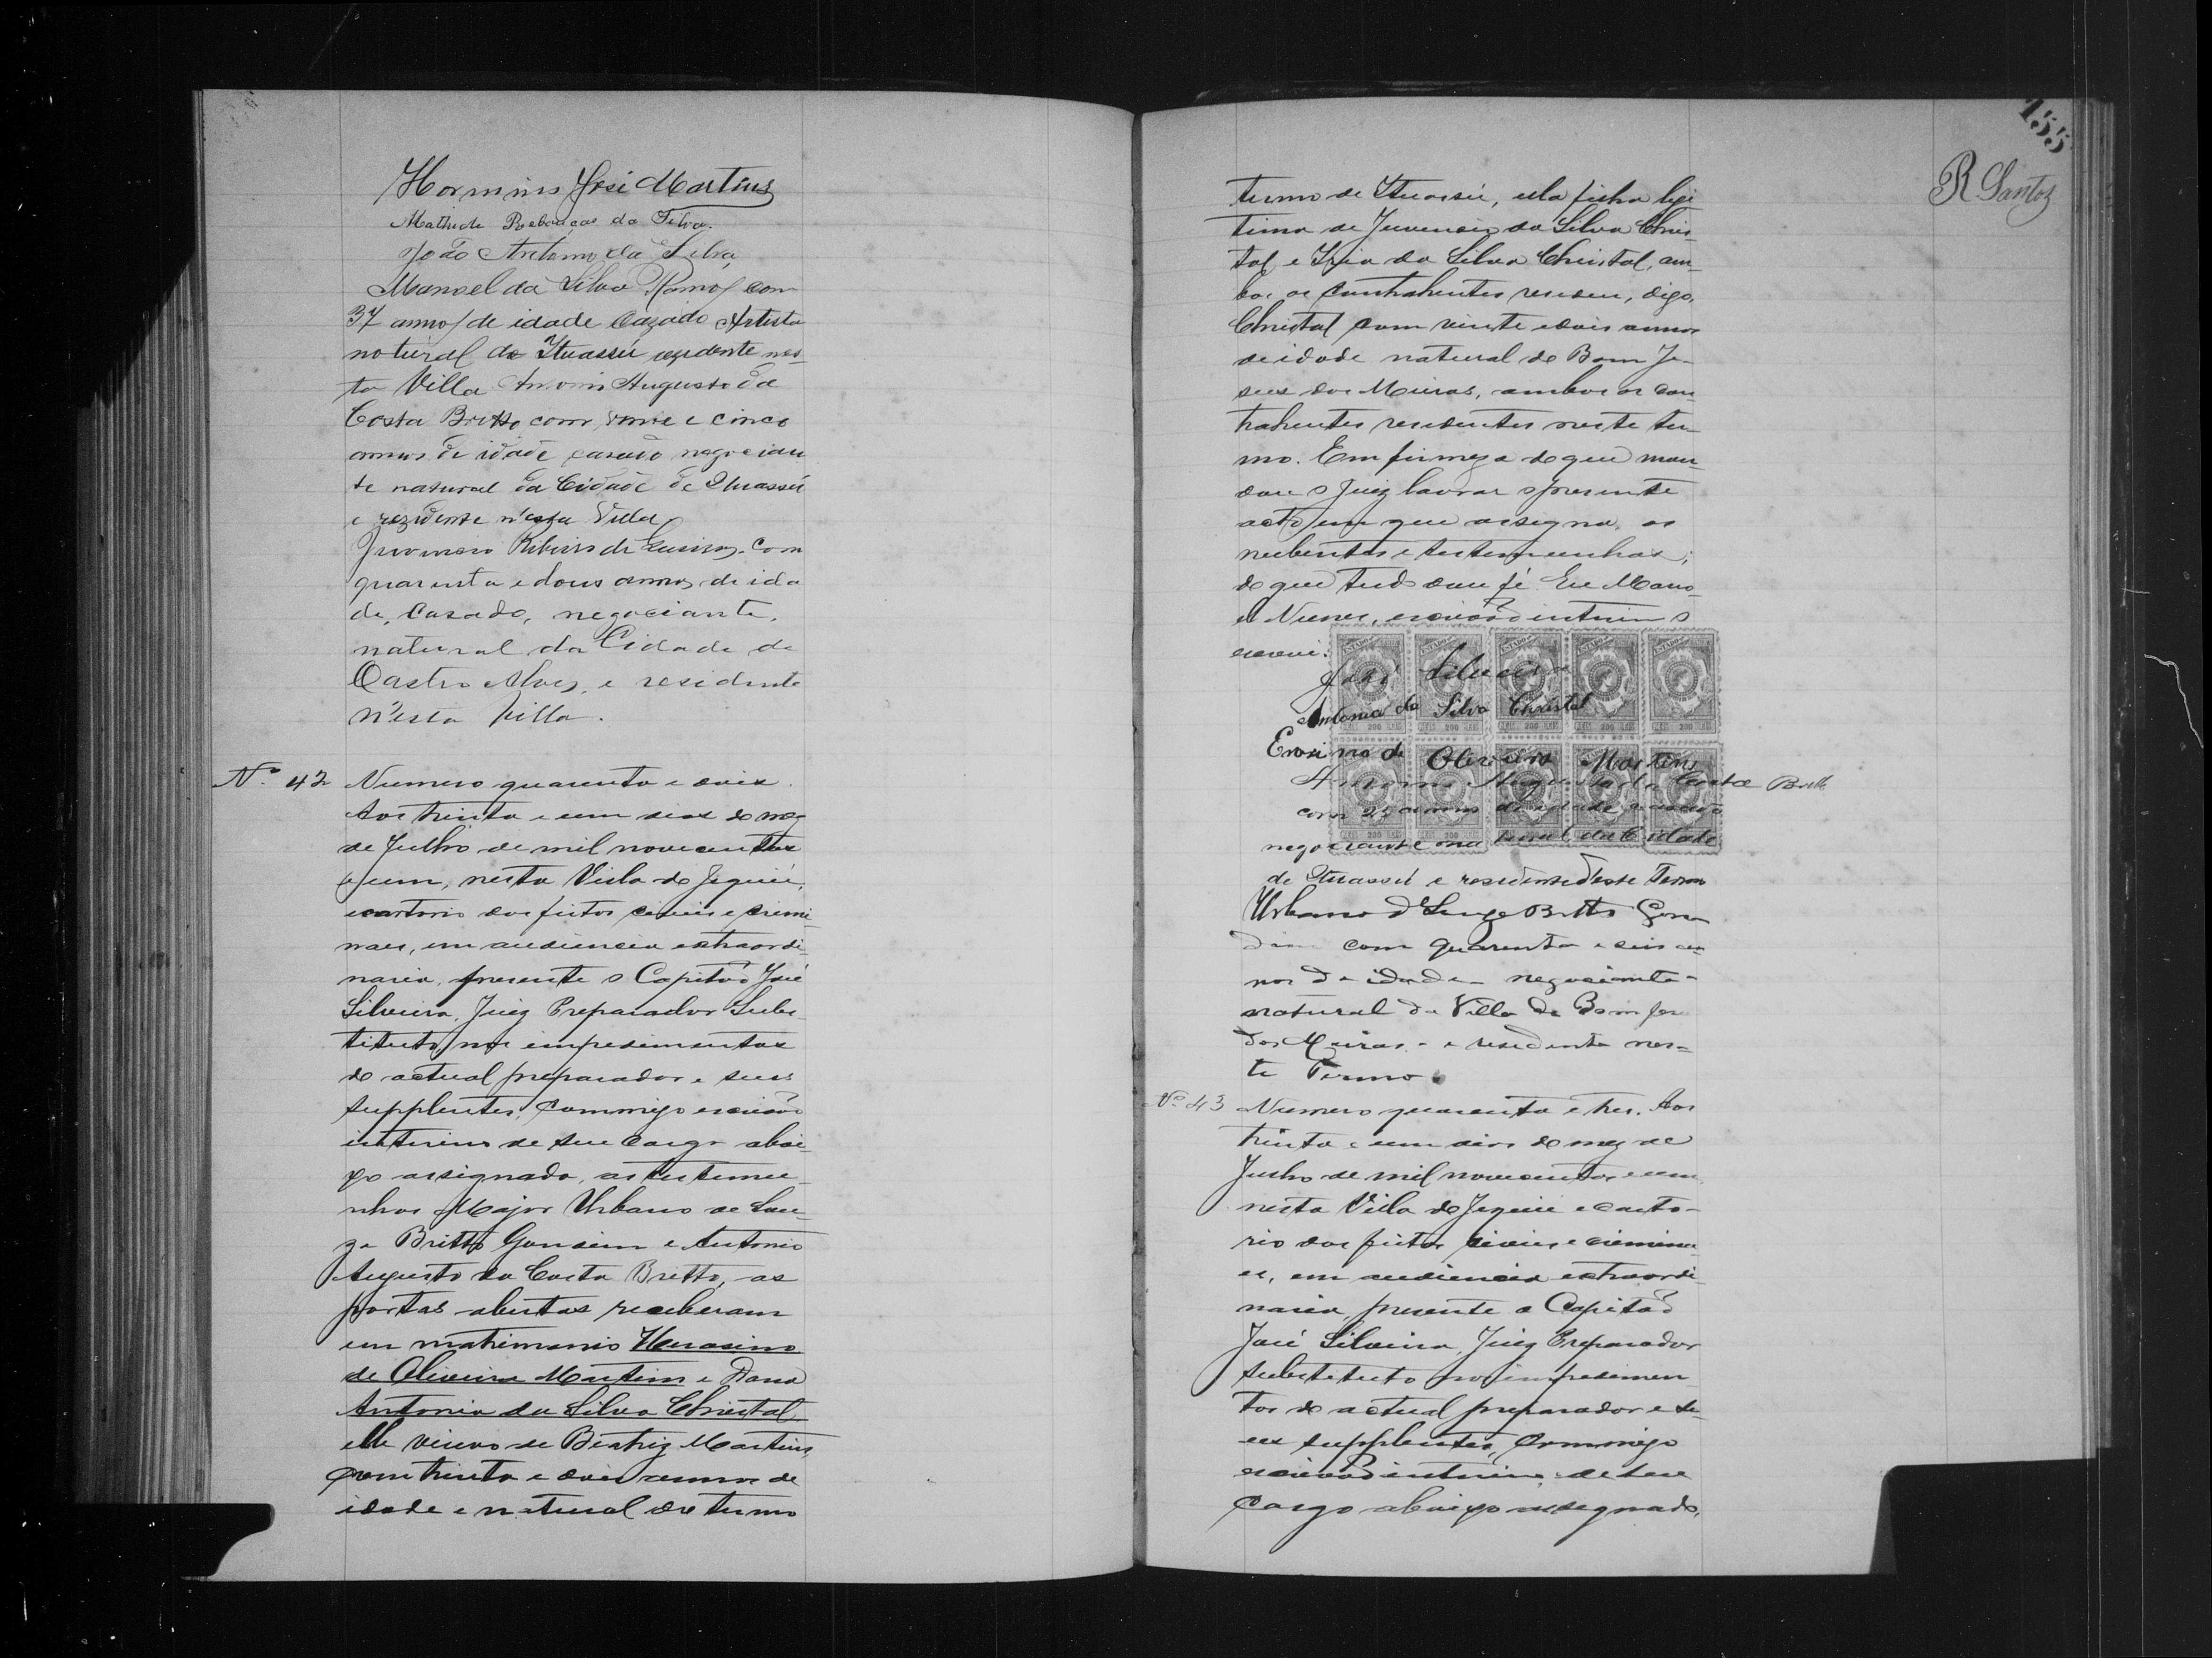 Hormins José Martins
Mathilde Rebouças da Silva.
João Antonio da Silva
Manoel da Silva Ramos com
37 annos de idade Cazado Artista
natural de Ituassú rezidente nes-
ta Villa Antonio Augusto da
Costa Britto com vinte e cinco
annos de idade casado negocian
te natural da Cidade de Ituassú
e rezidente n'esta Villa
Ribeiro de com
quarenta e dous annos de ida
de, Casado, negociante,
natural da Cidade de
Castro Alves, e residente
n'esta villa.
Nº 42 Numero quarenta e dois.
Aos trinta e um dias do mez
de Julho de mil novecentos
e um, nesta Villa de Jequié,
e cartorio dos feitos civeis e crimi
naes, em audiencia extraordi
naria, presente o Capitão José
Silveira, Juiz Preparador Subs
tituto nos impedimentos
do actual preparador e seus
supplentes, commigo escrivão
interino de seu cargo abai-
xo assignado, as testemu-
nhas Major Urbano de Sou-
za Britto Gondim e Antonio
Augusto da Costa Britto, as
portas abertas receberam
em matrimonio Herosino
de Oliveira Martins e Dona
Antonia da Silva Christal
elle viuvo de Beatriz Martins,
com trinta e dois annos de
idade e natural do termo
155
R. Santos
termo de Ituassú, ella filha legi
tima de Juvencio da Silva Chris-
tal e Iria da Silva Christal, am-
bos os contrahentes residen, digo,
Christal com vinte e dois annos
de idade natural de Bom Je-
sus dos Meiras, ambos os con-
trahentes residentes neste ter
mo. Em firmeza do que man-
dou o Juiz lavrar o presente
acto em que assigna, os
nubentes e testemunhas;
do que tudo dou fé. Eu Mano-
el Nunes, escrivão interino o
escrevi.
José Silveira
Antonia da Silva Christal
Erosino de Oliveira Martins
Antonio Augusto da Costa Britto
com 25 annos de idade casado
negociante natural da Cidade
de Ituassú e residente deste Termo
Urbano de Souza Britto Gon
dim com quarenta e seis an
nos de idade - negociante -
natural da Villa de Bom Jesus
dos Meiras - e residente nes-
te Termo
Nº 43 Numero quarenta e tres. Aos
trinta e um dias do mez de
Julho de mil novecentos e um,
nesta Villa de Jequié e carto-
rio dos feitos civeis e crimina-
es, em audiencia extraordi
naria, presente o Capitão
José Silveira, Juiz Preparador
Substituto no impedimen
tos do actual preparador e se-
us supplentes, commigo
escrivão interino de seu
cargo abaixo assignado,